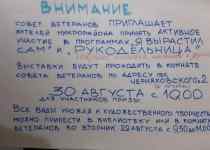 ВНИМАНИЕ
СОВЕТ ВЕТЕРАНОВ ПРИГЛАШАЕТ
ЖИТЕЛЕЙ МИКРОРАЙОНА ПРИНЯТЬ АКТИВНОЕ
УЧАСТИЕ В ПРОГРАММАХ „Я ВЫРАСТИЛ
САМ" И „РУКОДЕЛЬНИЦА"
ВЫСТАВКИ БУДУТ ПРОХОДИТЬ В КОМНАТЕ
СОВЕТА ВЕТЕРАНОВ ПО АДРЕСУ
ЧЕРНЯХОВСКОГО 2
30 АВГУСТА с 10.00
ДЛЯ УЧАСТНИКОВ ПРИЗЫ
ВСЕ ВИДЫ УРОЖАЯ И ХУДОЖЕСТВЕННОГО ТВОРЧЕСТВА
МОЖНО ПРИНЕСТИ В БИБЛИОТЕКУ ИЛИ В КОМНАТУ
ВЕТЕРАНОВ ВО ВТОРНИК 29 АВГУСТА с 9.30